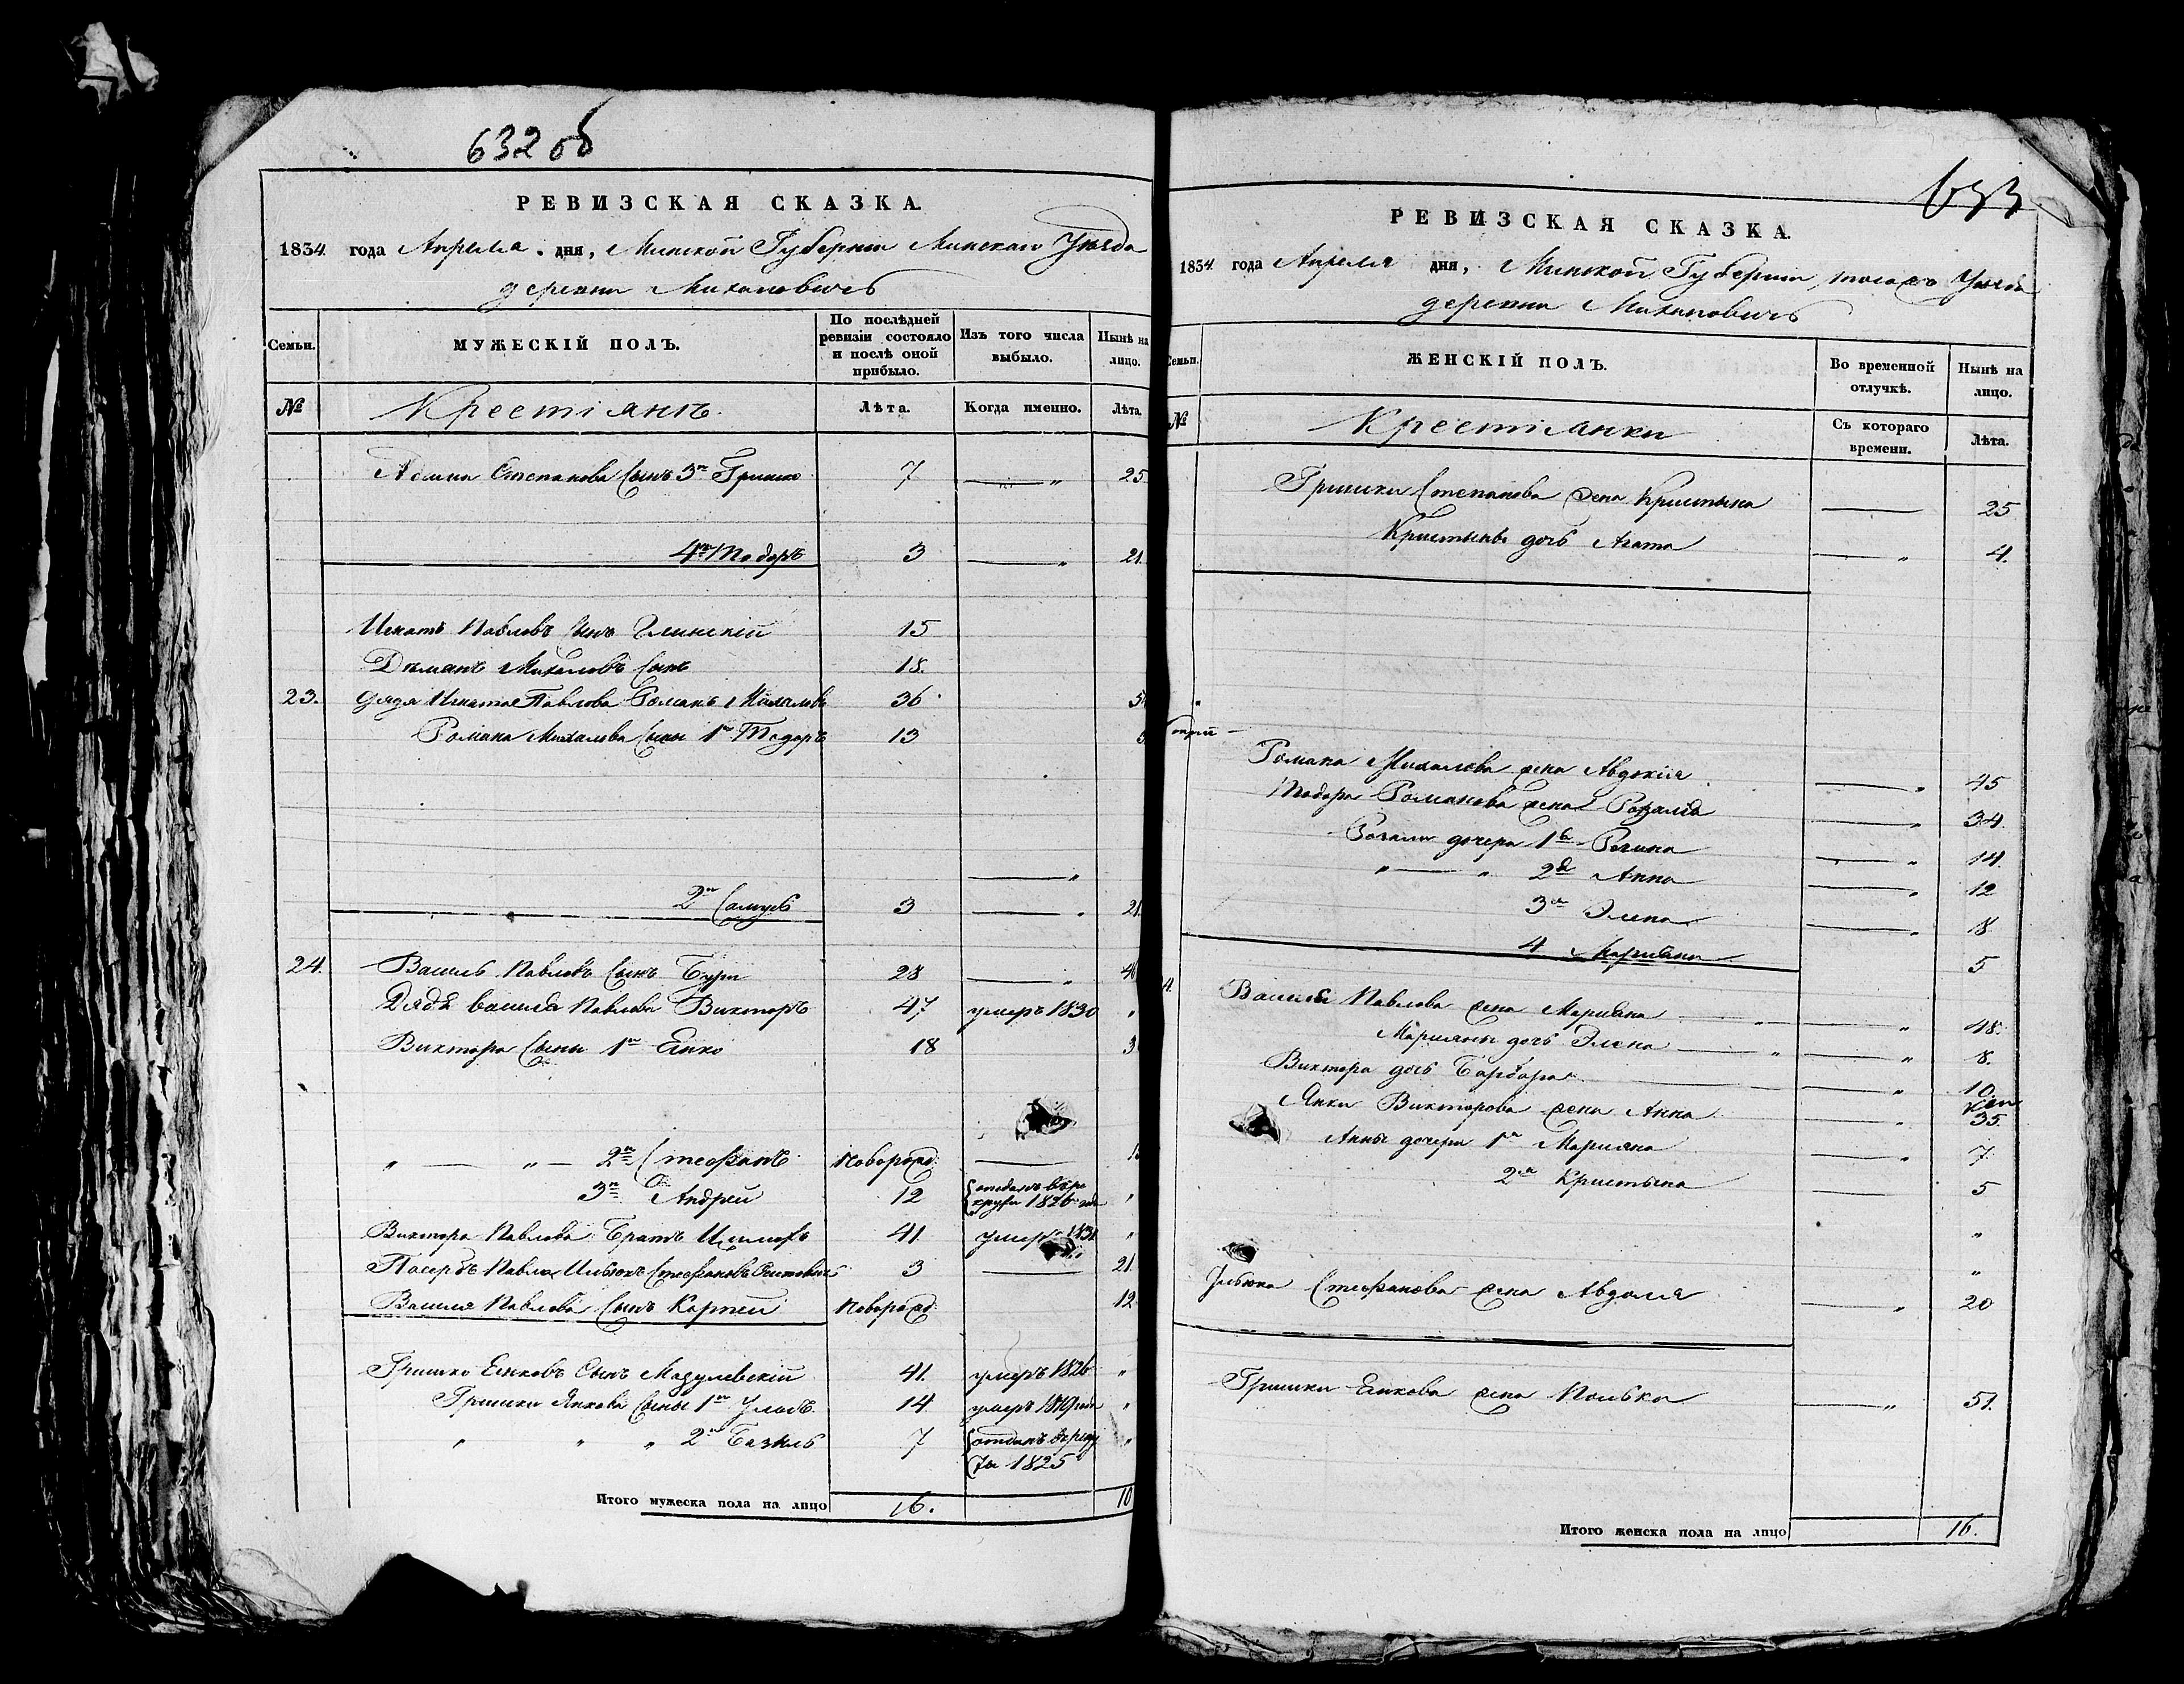 632 об
РЕВИЗСКАЯ СКАЗКА.
1834 года Апреля дня, Минской Губернии Минскаго Уезда
деревни Михановичь
Семьи.
МУЖЕСКІЙ ПОЛЪ.
По послѣдней ревизіи состояло и послѣ оной прибыло.
Изъ того числа выбыло.
Нынѣ на лицо.
№
Крестіянъ.
Лѣта.
Когда именно.
Лѣта.
Степанова Сынъ 3й Гришко 7 — " 25
4й Тодоръ 3 — " 21.
Игнатъ Павловъ Сынъ Глинскій 15
Демянъ Михаловъ Сынъ 18.
23. дядя Игната Павлова Романъ Михаловъ 36
Романа Михалова Сыны 1й Тодоръ 13
— "
2й Самусь 3 — " 21.
24. Василь Павловъ Сынъ 28 — "
Дядя Василя Павлова Викторъ 47 умеръ 1830 "
Виктора Сыны 1й Янко 18
" — " — 2й Стефанъ Новорожд. —
3й Андрей 12 отданъ въ рекруты 1826 года "
Виктора Павлова Братъ 41 умеръ 1831 "
Павла Стефановъ 3 — 21.
Василя Павлова Сынъ Карпей Новорожд. 12
Гришко Янковъ Сынъ Мадулевскій 41. умеръ 1826 "
Гришки Янкова Сыны 1й 14 умеръ "
" " " 2й Базыль 7 отданъ въ рекруты 1825 "
Итого мужеска пола на лицо 16. 10
633
РЕВИЗСКАЯ СКАЗКА.
1834 года Апреля дня, Минской Губернии, тогожъ Уезда
деревни Михановичь
Семьи.
ЖЕНСКІЙ ПОЛЪ.
Во временной отлучкѣ.
Нынѣ на лицо.
№
Крестіянки
Съ котораго времени.
Лѣта.
Гришки Степанова жена Кристына — 25
Кристыны дочь Агата — " 4.
Романа Михалова жена Авдокія — " 45
Тодора Романова жена Розалія — " 34.
Розалии дочери 1я Регина — " 14.
" — " 2я Анна — " 12
3я Элена — " 8
4 Марияна 5
Василя Павлова жена Марияна — " — " 48.
Марияны дочь Элена — " — " 8.
Виктора дочь Барбара — " 10
Янки Викторова жена Анна — " 35.
Анны дочери 1я Марияна — " 7.
2я Кристына — 5
"
"
Стефанова жена Авдоля — " 20
Гришки Янкова жена Полька — " 51.
Итого женска пола на лицо 16.